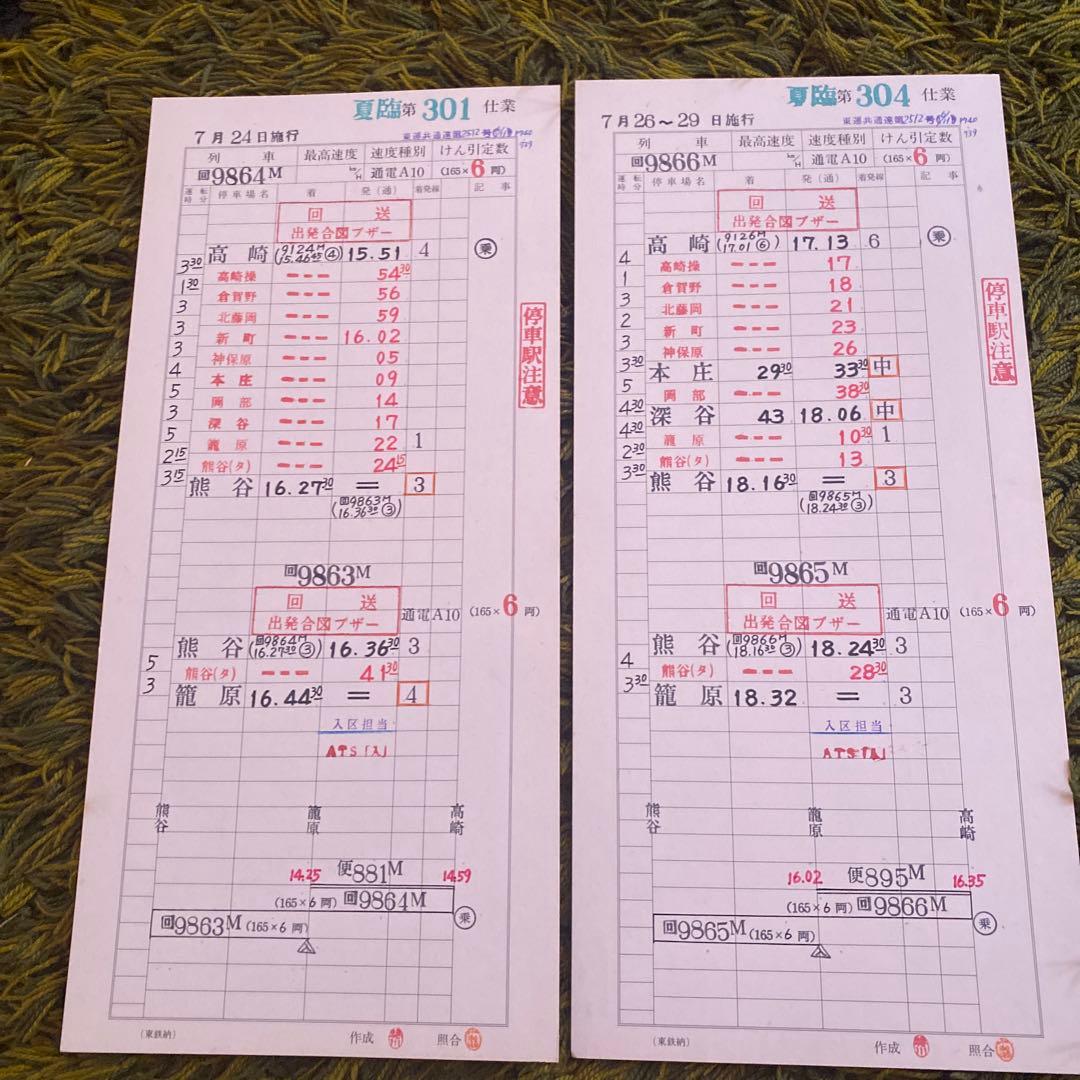 夏臨第301仕業
7月24日施行
東運共通達第2512号
列車 最高速度 速度種別 けん引定数
回9864M km/H 通電A10 (165×6両)
運転時分 停車場名 着 発(通) 着発線 記事
回送
出発合図ブザー
高崎 (9124M 15.46⁴⁵④) 15.51 4 乗
3³⁰
高崎操 --- 54³⁰
1³⁰
倉賀野 --- 56
3
北藤岡 --- 59
3
新町 --- 16.02
3
神保原 --- 05
4
本庄 --- 09
5
岡部 --- 14
3
深谷 --- 17
5
籠原 --- 22 1
2¹⁵
熊谷(タ) --- 24¹⁵
3¹⁵
熊谷 16.27³⁰ = 3
(回9863M 16.36³⁰③)
停車駅注意
回9863M
回送
出発合図ブザー
通電A10 (165×6両)
熊谷 (回9864M 16.27³⁰③) 16.36³⁰ 3
5
熊谷(タ) --- 41³⁰
3
籠原 16.44³⁰ = 4
入区担当
ATS「入」
熊谷 籠原 高崎
14.25 便881M 14.59
(165×6両) 回9864M
回9863M (165×6両) 乗
(東鉄納) 作成 照合
夏臨第304仕業
7月26~29日施行
東運共通達第2512号
列車 最高速度 速度種別 けん引定数
回9866M km/H 通電A10 (165×6両)
運転時分 停車場名 着 発(通) 着発線 記事
回送
出発合図ブザー
高崎 (9126M 17.01⑥) 17.13 6 乗
4
高崎操 --- 17
1
倉賀野 --- 18
3
北藤岡 --- 21
2
新町 --- 23
3
神保原 --- 26
3³⁰
本庄 29³⁰ 33³⁰ 中
5
岡部 --- 38³⁰
4³⁰
深谷 43 18.06 中
4³⁰
籠原 --- 10³⁰ 1
2³⁰
熊谷(タ) --- 13
3³⁰
熊谷 18.16³⁰ = 3
(回9865M 18.24³⁰③)
停車駅注意
回9865M
回送
出発合図ブザー
通電A10 (165×6両)
熊谷 (回9866M 18.16³⁰③) 18.24³⁰ 3
4
熊谷(タ) --- 28³⁰
3³⁰
籠原 18.32 = 3
入区担当
ATS「入」
熊谷 籠原 高崎
16.02 便895M 16.35
(165×6両) 回9866M
回9865M (165×6両) 乗
(東鉄納) 作成 照合